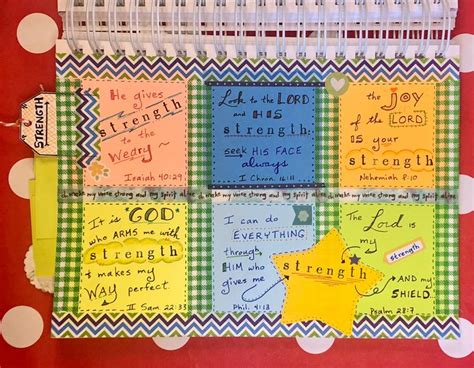 STRENGTH
He gives
strength
to the
Weary ~
Isaiah 40:29
Look to the LORD
and HIS
strength:
seek HIS FACE
always
I Chron. 16:11
the
JOY
of the
LORD
IS your
strength
Nehemiah 8:10
makes my voice strong and my spirit
It is *GOD*
who ARMS me with
strength
& makes my
WAY perfect.
II Sam 22:33
I can do
EVERYTHING
through
HIM who
gives me
strength
Phil. 4:13
The Lord is
my
strength
AND my
SHIELD.
Psalm 28:7